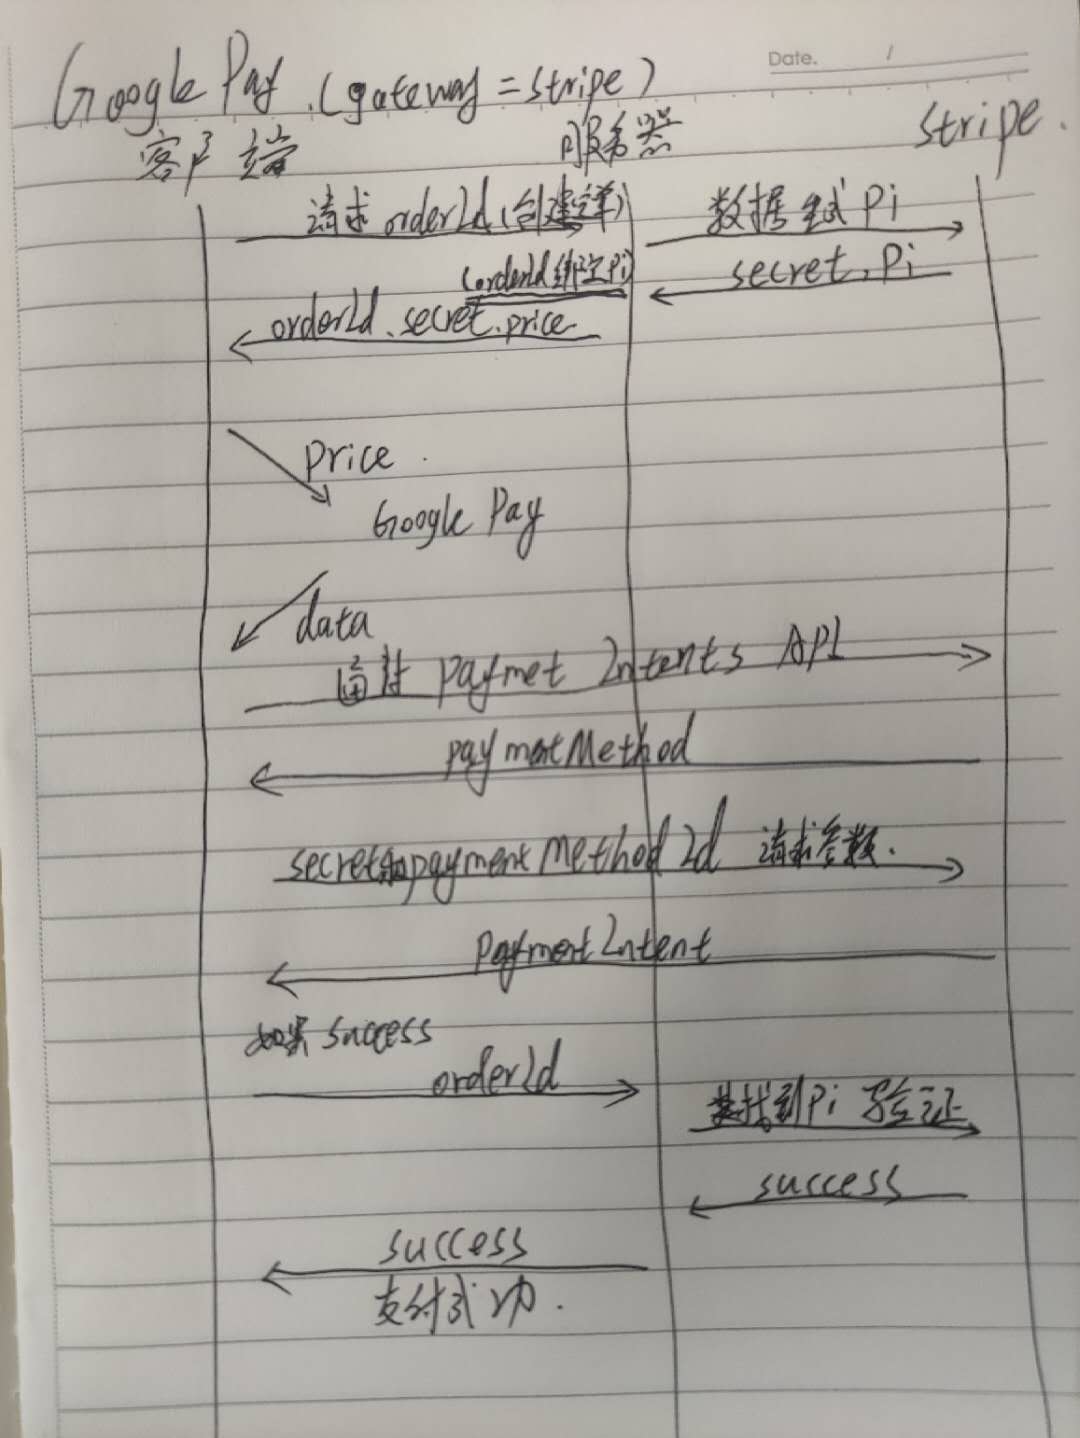 Date.
Google Pay.(gateway=stripe)
客户端 服务器 stripe.
请求 orderId(创建订单) 数据生成Pi
(orderId绑定Pi) secret,Pi
orderId.secret.price
price
Google Pay
data
通过 Paymet Intents API
paymentMethod
secret和paymentMethodId 请求参数.
PaymentIntent
如果 success
orderId
查找到Pi 验证
success
success
支付成功.